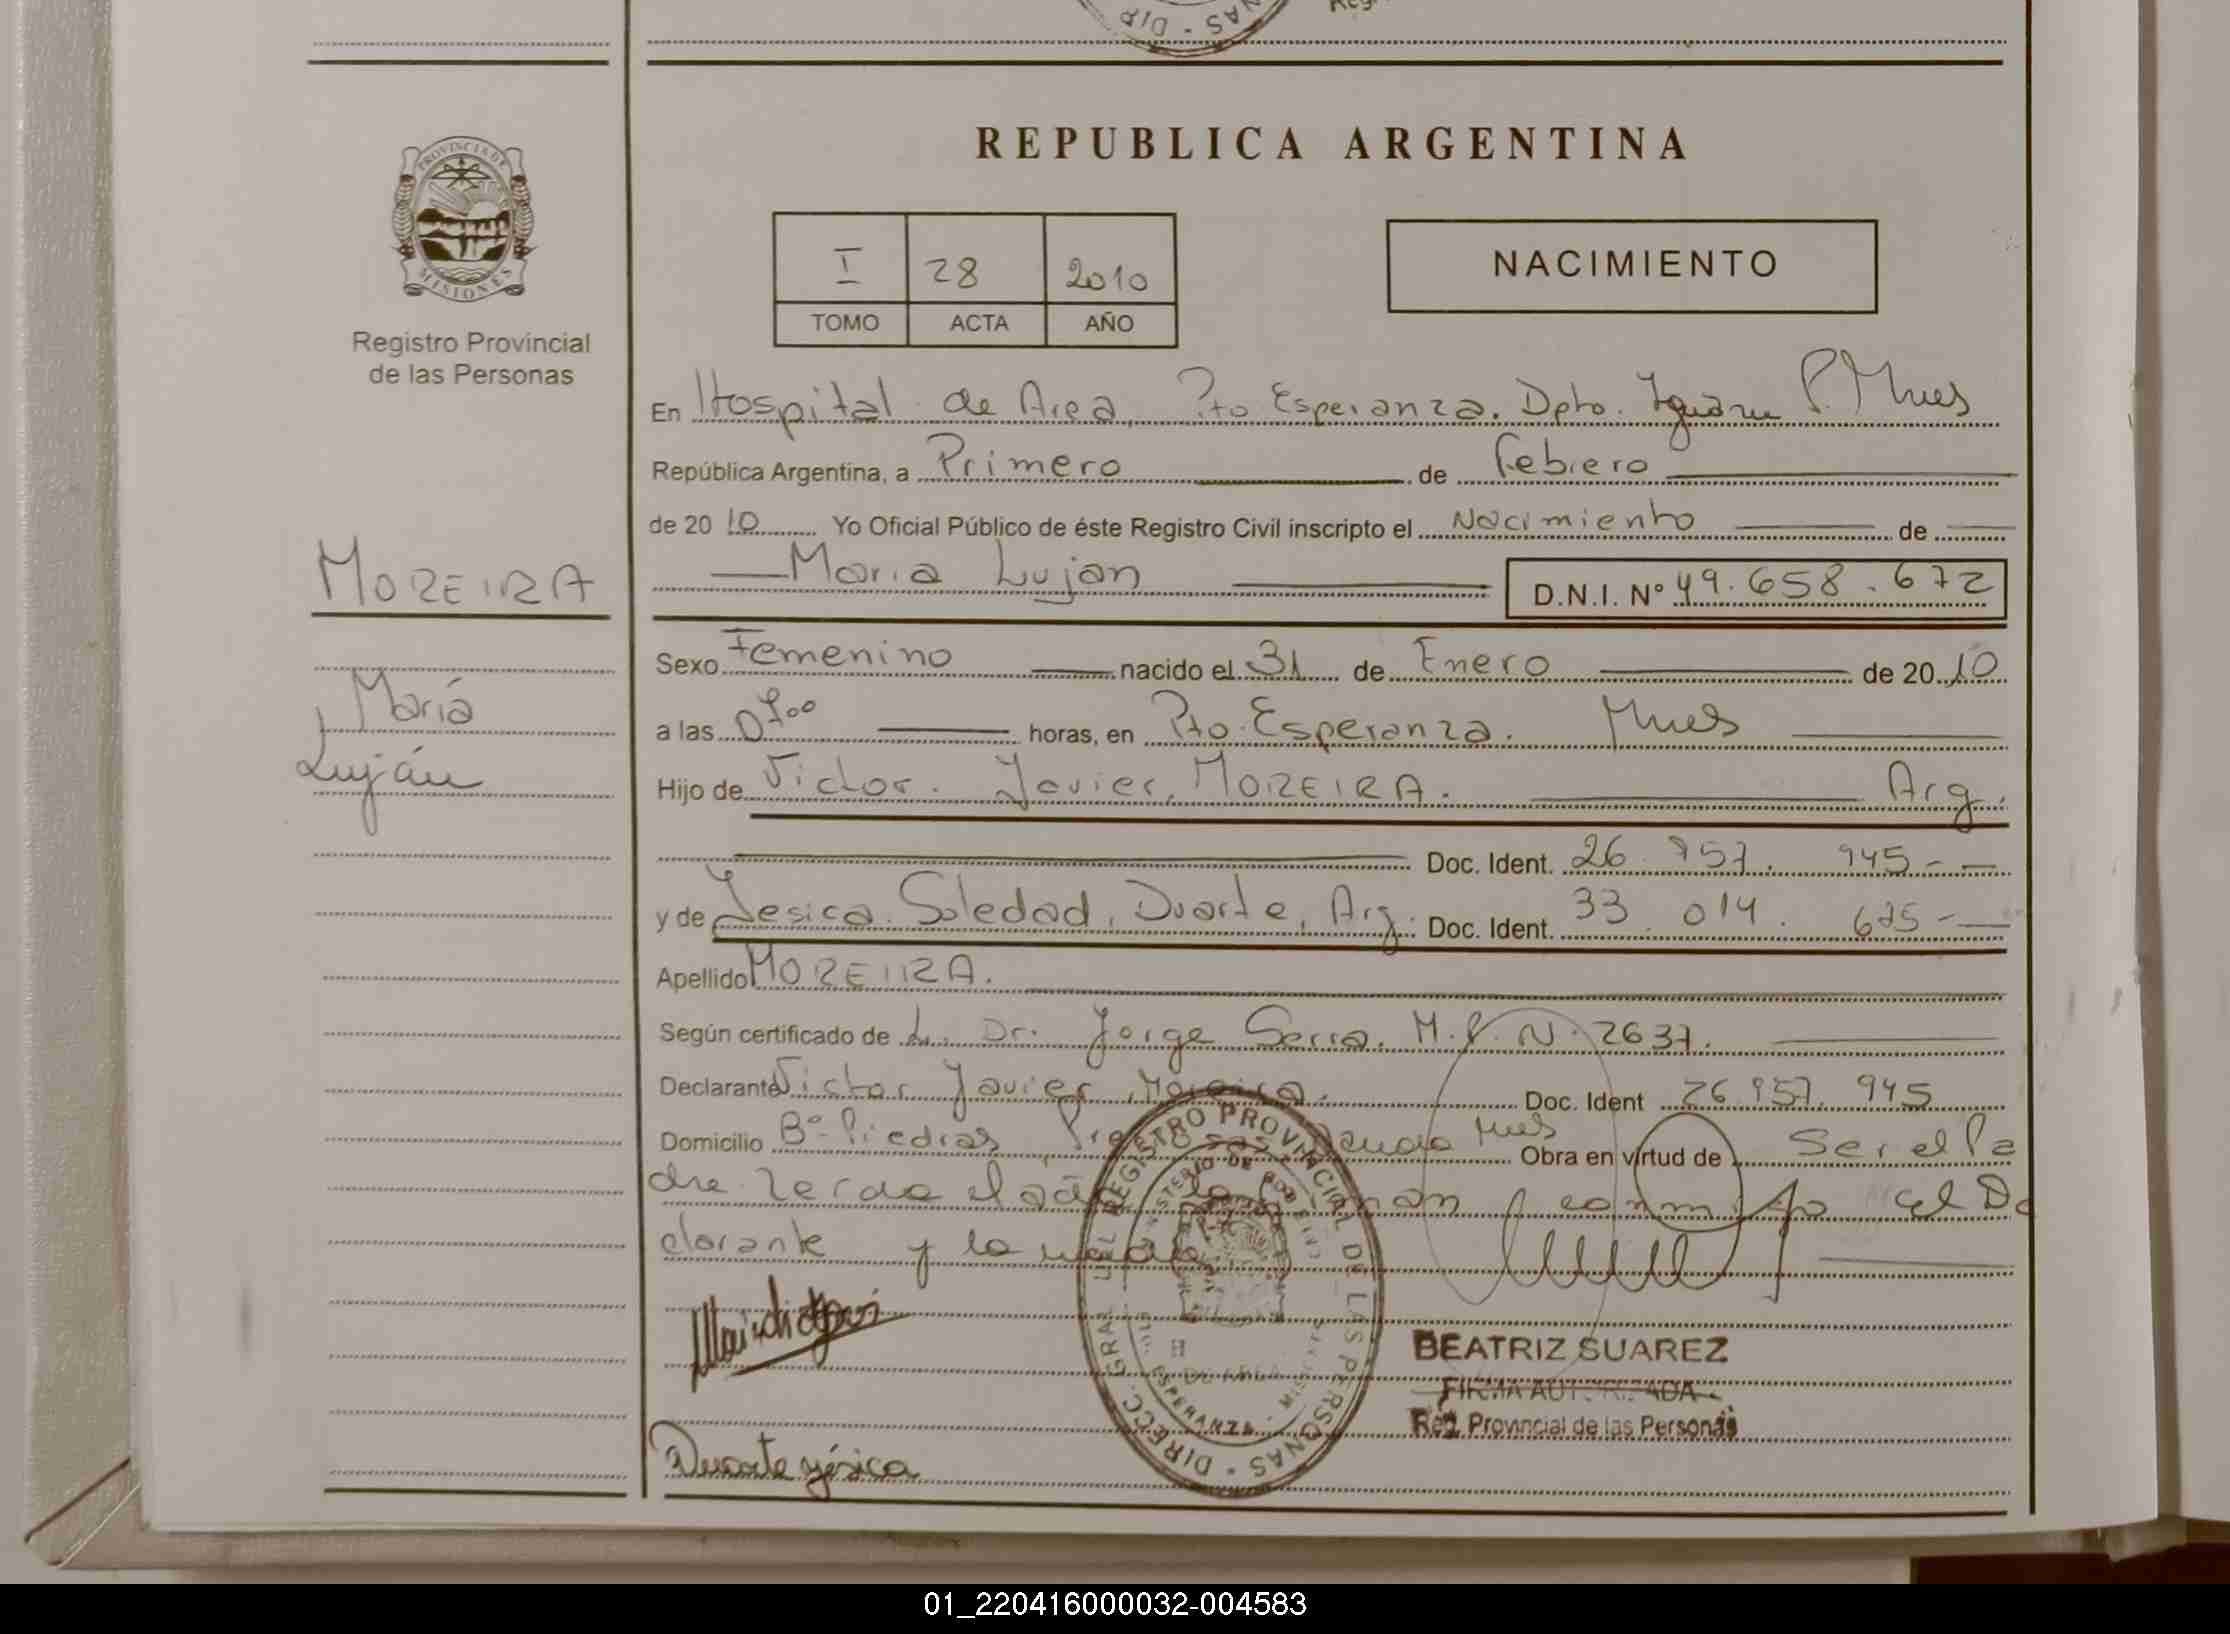 REPUBLICA ARGENTINA
PROVINCIA DE
MISIONES
Registro Provincial
de las Personas
I 28 2010
TOMO ACTA AÑO
NACIMIENTO
En Hospital de Area, Pto Esperanza. Dpto. Iguazu P. Mnes
República Argentina, a Primero de Febrero
de 20 10 Yo Oficial Público de éste Registro Civil inscripto el Nacimiento de
Maria Lujan D.N.I. Nº 49.658.672
MOREIRA
María
Luján
Sexo Femenino nacido el 31 de Enero de 20 10
a las 0700 horas, en Pto. Esperanza. Mnes
Hijo de Victor. Javier, MOREIRA. Arg.
Doc. Ident. 26. 957. 945--
y de Jesica Soledad, Duarte, Arg. Doc. Ident. 33 014. 675-
Apellido MOREIRA.
Según certificado de L. Dr. Jorge Serra. M.P. N. 2637.
Declarante Victor Javier, Moreira. Doc. Ident 26.957. 945
Domicilio Bº Piedras, Mnes Obra en virtud de Ser el Pa
dre el De
clarante y la
REGISTRO PROVINCIAL DE LAS PERSONAS - DIRECC. GRAL
ESPERANZA - MISIONES
BEATRIZ SUAREZ
FIRMA AUTORIZADA
Reg. Provincial de las Personas
Duarte yésica
01_220416000032-004583